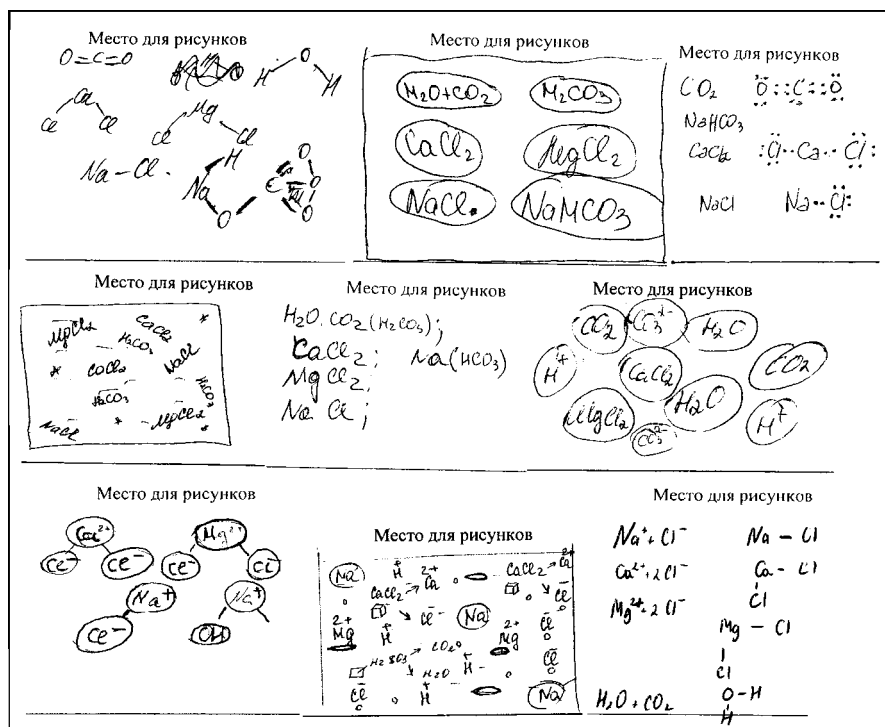 Место для рисунков
O=C=O
H O H
Ca
Cl Cl
Mg
Cl Cl
Na-Cl.
H
Na
O
C O O O
Место для рисунков
H2O+CO2 H2CO3
CaCl2 MgCl2
NaCl. NaHCO3
Место для рисунков
CO2 O::C::O
NaHCO3
CaCl2 :Cl··Ca··Cl:
NaCl Na··Cl:
Место для рисунков
MgCl2 CaCl2 *
H2CO3 NaCl
* CaCl2
H2CO3 H2CO3
* MgCl2 *
NaCl
Место для рисунков
H2O·CO2(H2CO3);
CaCl2; Na(HCO3)
MgCl2;
NaCl;
Место для рисунков
CO2 CO3 2- H2O
H+ CaCl2 CO2
MgCl2 H2O H+
CO3 2-
Место для рисунков
Ca2+ Mg2+
Cl- Cl- Cl- Cl-
Na+ Na+
Cl- OH
Место для рисунков
Na H+ Ca2+ CaCl2 Ca2+
CaCl2 Cl- Cl-
Mg2+ H+ Cl- Na Mg2+ Cl-
H2SO3 CO2 Cl-
H2O H+
Cl- H+ Na
Место для рисунков
Na+ + Cl- Na – Cl
Ca2+ + 2Cl- Ca – Cl
Cl
Mg2+ + 2Cl- Mg – Cl
Cl
H2O + CO2 O-H
H